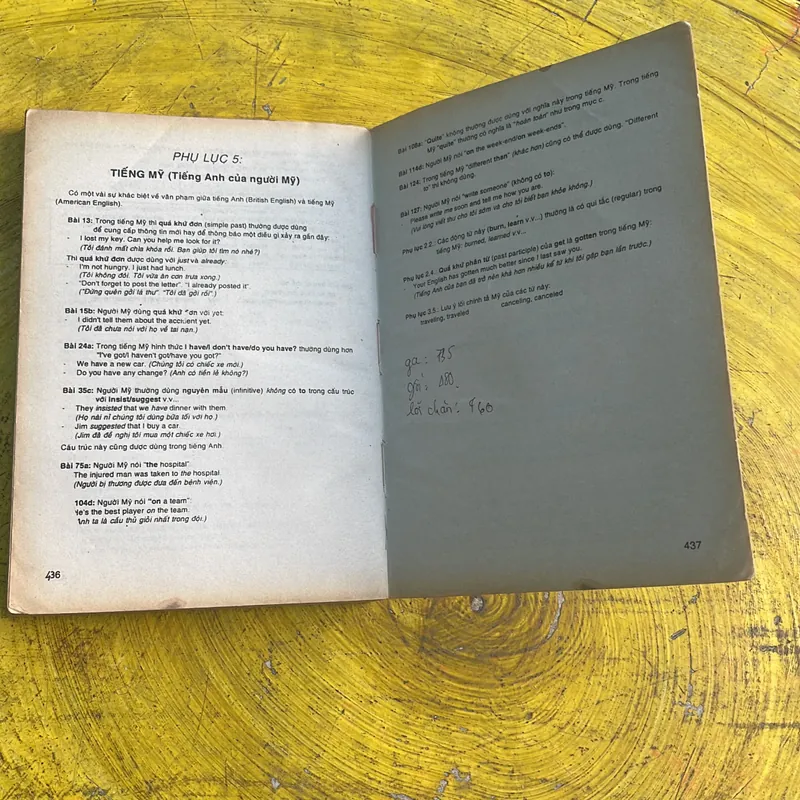 PHỤ LỤC 5:
TIẾNG MỸ (Tiếng Anh của người Mỹ)
Có một vài sự khác biệt về văn phạm giữa tiếng Anh (British English) và tiếng Mỹ
(American English).
Bài 13: Trong tiếng Mỹ thì quá khứ đơn (simple past) thường được dùng
để cung cấp thông tin mới hay để thông báo một điều gì xảy ra gần đây:
- I lost my key. Can you help me look for it?
(Tôi đánh mất chìa khóa rồi. Bạn giúp tôi tìm nó nhé?)
Thì quá khứ đơn được dùng với just và already.
- I'm not hungry. I just had lunch.
(Tôi không đói. Tôi vừa ăn cơm trưa xong.)
- "Don't forget to post the letter". "I already posted it".
("Đừng quên gởi lá thư". "Tôi đã gởi rồi".)
Bài 15b: Người Mỹ dùng quá khứ đơn với yet:
- I didn't tell them about the accident yet.
(Tôi đã chưa nói với họ về tai nạn.)
Bài 24a: Trong tiếng Mỹ hình thức I have/I don't have/do you have? thường dùng hơn
"I've got/I haven't got/have you got?"
- We have a new car. (Chúng tôi có chiếc xe mới.)
- Do you have any change? (Anh có tiền lẻ không?)
Bài 35c: Người Mỹ thường dùng nguyên mẫu (infinitive) không có to trong cấu trúc
với insist/suggest v.v...
- They insisted that we have dinner with them.
(Họ nài nỉ chúng tôi dùng bữa tối với họ.)
- Jim suggested that I buy a car.
(Jim đã đề nghị tôi mua một chiếc xe hơi.)
Cấu trúc này cũng được dùng trong tiếng Anh.
Bài 75a: Người Mỹ nói "the hospital".
The injured man was taken to the hospital.
(Người bị thương được đưa đến bệnh viện.)
104d: Người Mỹ nói "on a team":
He's the best player on the team.
Anh ta là cầu thủ giỏi nhất trong đội.)
436
Bài 108a: "Quite" không thường được dùng với nghĩa này trong tiếng Mỹ. Trong tiếng
Mỹ "quite" thường có nghĩa là "hoàn toàn" như trong mục c.
Bài 114d: Người Mỹ nói "on the week-end/on week-ends".
Bài 124: Trong tiếng Mỹ "different than" (khác hơn) cũng có thể được dùng. "Different
to" thì không dùng.
Bài 127: Người Mỹ nói "write someone" (không có to):
Please write me soon and tell me how you are.
(Vui lòng viết thư cho tôi sớm và cho tôi biết bạn khỏe không.)
Phụ lục 2.2. Các động từ này (burn, learn v.v...) thường là có qui tắc (regular) trong
tiếng Mỹ: burned, learned v.v...
Phụ lục 2.4. Quá khứ phân từ (past participle) của get là gotten trong tiếng Mỹ:
Your English has gotten much better since I last saw you.
(Tiếng Anh của bạn đã trở nên khá hơn nhiều kể từ khi tôi gặp bạn lần trước.)
Phụ lục 3.5: Lưu ý lối chính tả Mỹ của các từ này:
traveling, traveled canceling, canceled
180.
460
437